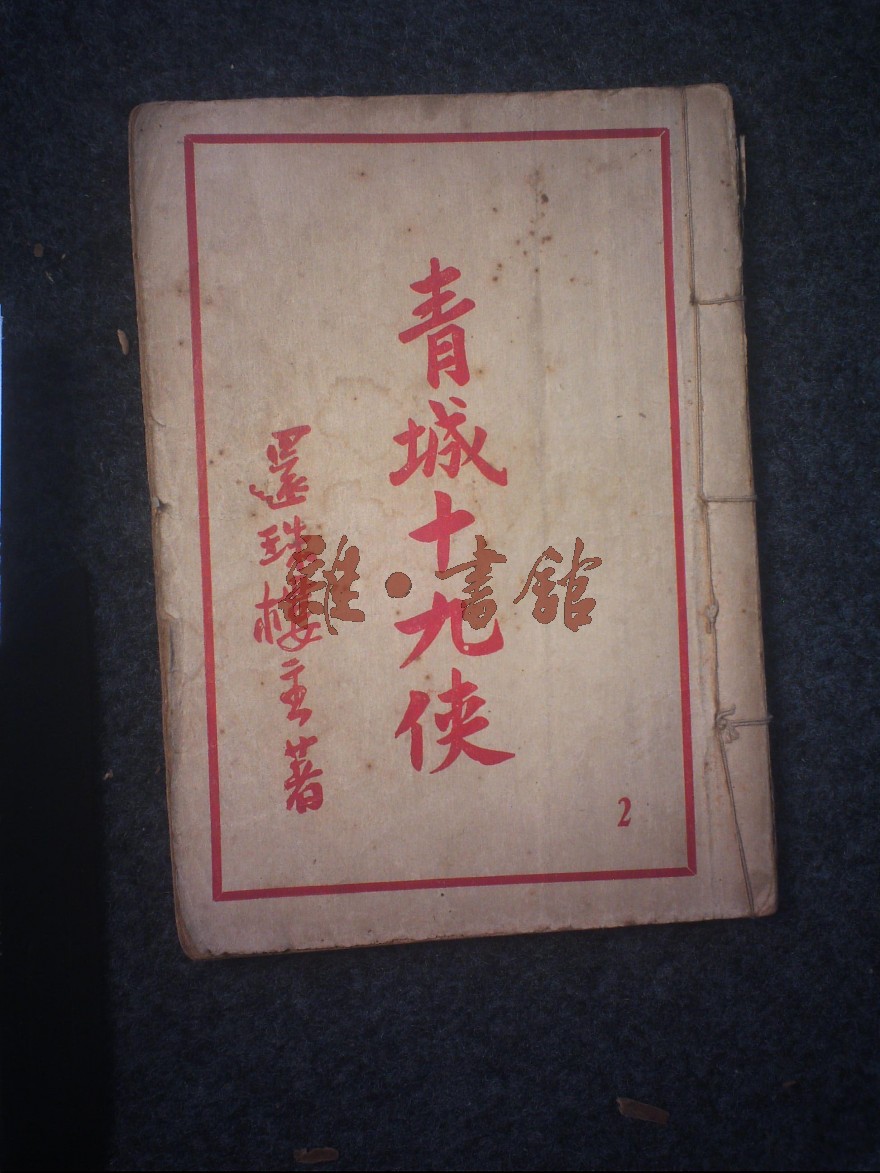 青城十九俠
還珠樓主著
2
雜·書館